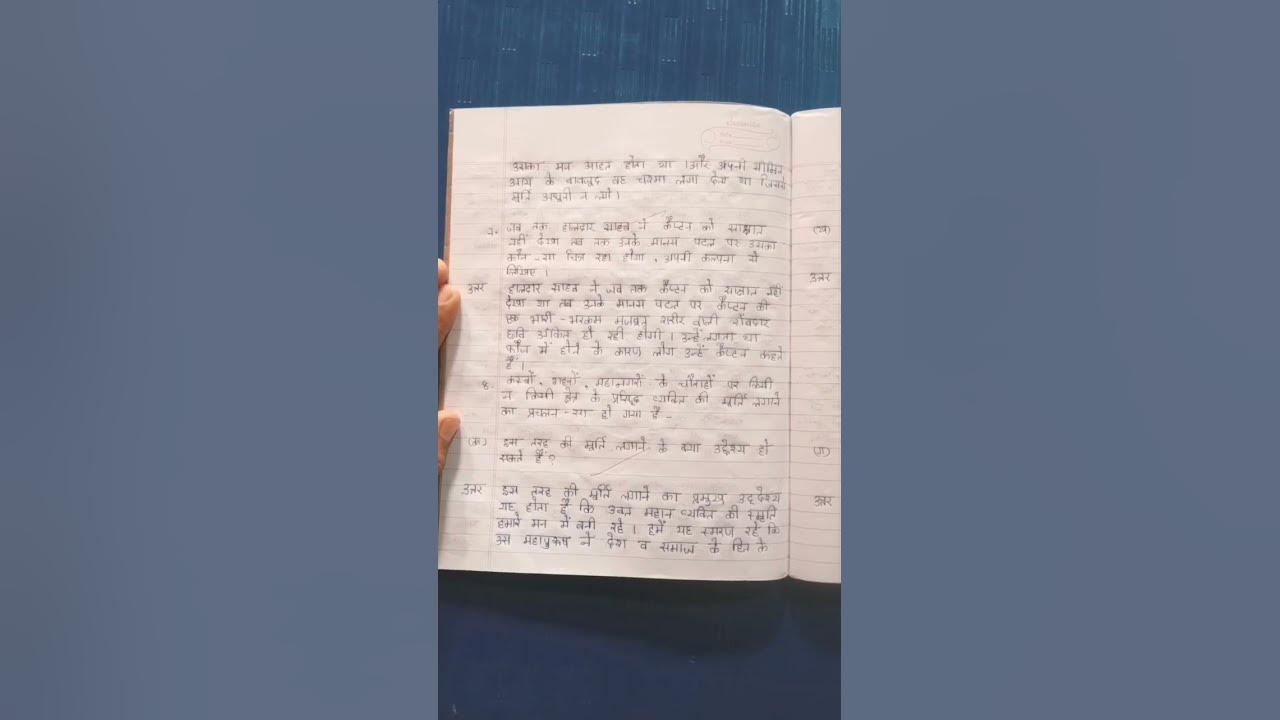 उसका मन आहत होता था । और अपनी सीमित
आय के बावजूद वह चश्मा लगा देता था जिससे
मूर्ति अधूरी न लगे ।
जब तक हालदार साहब ने कैप्टन को साक्षात
नहीं देखा तब तक उनके मानस पटल पर उसका
कौन-सा चित्र रहा होगा, अपनी कल्पना से
लिखिए ।
उत्तर हालदार साहब ने जब तक कैप्टन को साक्षात नहीं
देखा था तब उनके मानस पटल पर कैप्टन की
एक भारी-भरकम मजबूत शरीर वाली रोबदार
छवि अंकित हो रही होगी । उन्हें लगता था
फौज में होने के कारण लोग उन्हें कैप्टन कहते
हैं ।
8. कस्बों, शहरों, महानगरों के चौराहों पर किसी
न किसी क्षेत्र के प्रसिद्ध व्यक्ति की मूर्ति लगाने
का प्रचलन-सा हो गया है -
(क) इस तरह की मूर्ति लगाने के क्या उद्देश्य हो
सकते हैं ?
उत्तर इस तरह की मूर्ति लगाने का प्रमुख उद्देश्य
यह होता है कि उक्त महान व्यक्ति की स्मृति
हमारे मन में बनी रहे । हमें यह स्मरण रहे कि
उस महापुरुष ने देश व समाज के हित के
(ख)
उत्तर
(ग)
उत्तर